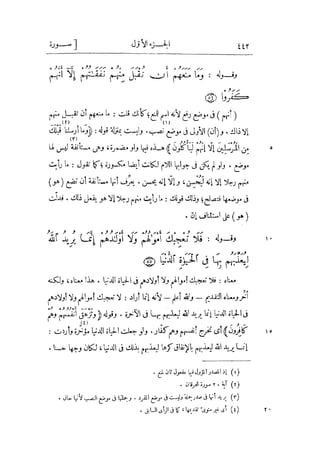 ٤٤٢ الجزء الأول [ سورة
وقوله : وَمَا مَنَعَهُمْ أَن تُقْبَلَ مِنْهُمْ نَفَقَاتُهُمْ إِلَّا أَنَّهُمْ
كَفَرُوا
( أنهم ) فى موضع رفع لأنه اسم للمنع؛ كأنك قلت : ما منعهم أن تقبل منهم
إلا ذاك . و ( أن ) الأولى فى موضع نصب . وليست بمنزلة قوله : ﴿وَمَا أَرْسَلْنَا قَبْلَكَ
٥ مِنَ الْمُرْسَلِينَ إِلَّا إِنَّهُمْ لَيَأْكُلُونَ﴾ هذه فيها واو مضمرة، وهى مستأنفة ليس لها
موضع . ولو لم يكن فى جوابها اللام لكانت أيضا مكسورة؛ كما تقول : ما رأيت
منهم رجلا إلا إنه ليُحسن، و إلّا إنه يحسن . يعرّف أنها مستأنفة أن تضع ( هو )
فى موضعها فتصلح؛ وذلك قولك : ما رأيت منهم رجلا إلا هو يفعل ذلك . فدلّت
( هو ) على استئناف إن .
١٠ وقوله : فَلَا تُعْجِبْكَ أَمْوَالُهُمْ وَلَا أَوْلَادُهُمْ إِنَّمَا يُرِيدُ اللَّهُ
لِيُعَذِّبَهُم بِهَا فِي الْحَيَاةِ الدُّنْيَا
معناه : فلا تعجبك أموالهم ولا أولادهم فى الحياة الدنيا . هذا معناه، ولكنه
أخّر ومعناه التقديم – والله أعلم – لأنه إنما أراد : لا تعجبك أموالهم ولا أولادهم
فى الحياة الدنيا إنما يريد الله ليعذبهم بها فى الآخرة . وقوله ﴿وَتَزْهَقَ أَنْفُسُهُمْ وَهُمْ
١٥ كَافِرُونَ﴾ أى تخرج أنفسهم وهم كفّار . ولو جعلت الحياة الدنيا مؤخّرة وأردت :
إنما يريد الله ليعذبهم بالإنفاق كرها ليعذبهم بذلك فى الدنيا، لكان وجها حسنا .
(١) إذ المصدر المؤول فيها مفعول ثان لمنع .
(٢) آية ٢٠ سورة الفرقان .
(٣) يريد أنها فى صدر جملة وليست فى موضع المفرد . وجملتها فى موضع النصب لأنها حال .
٢٠ (٤) أى غير منوىّ تقديمها، كما فى الرأى السابق .